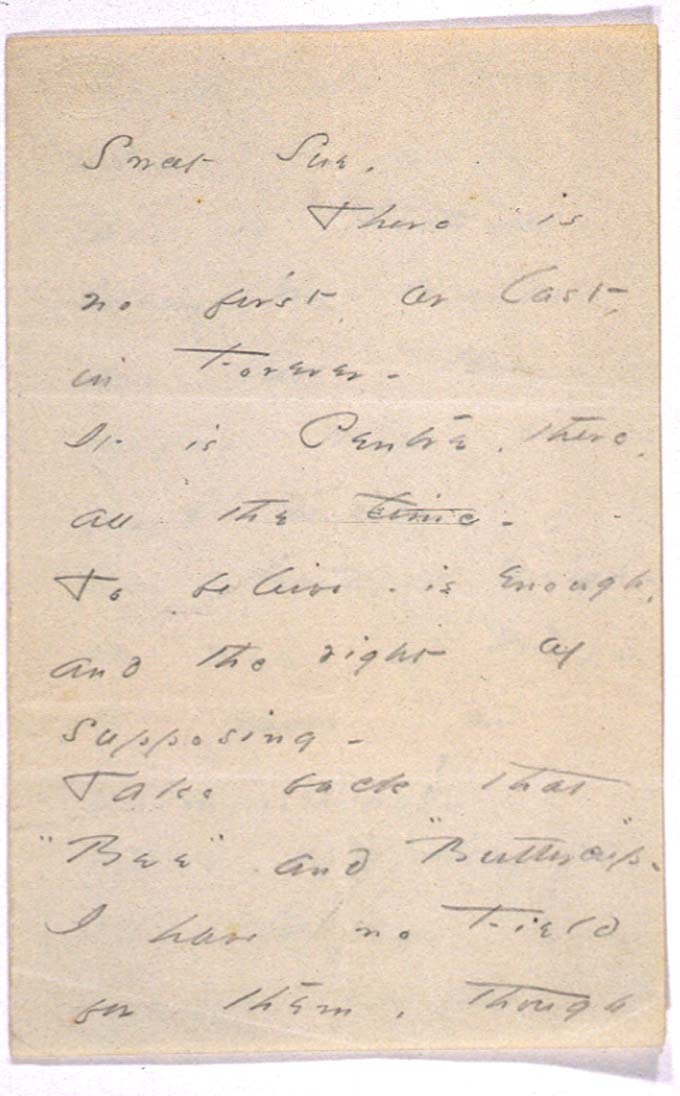 Sweet Sue.
There is
no first, or last,
in Forever -
It is Centre, there,
all the time -
To believe - is enough,
and the right of
supposing -
Take back that
"Bee" and "Buttercup" -
I have no Field
for them, though